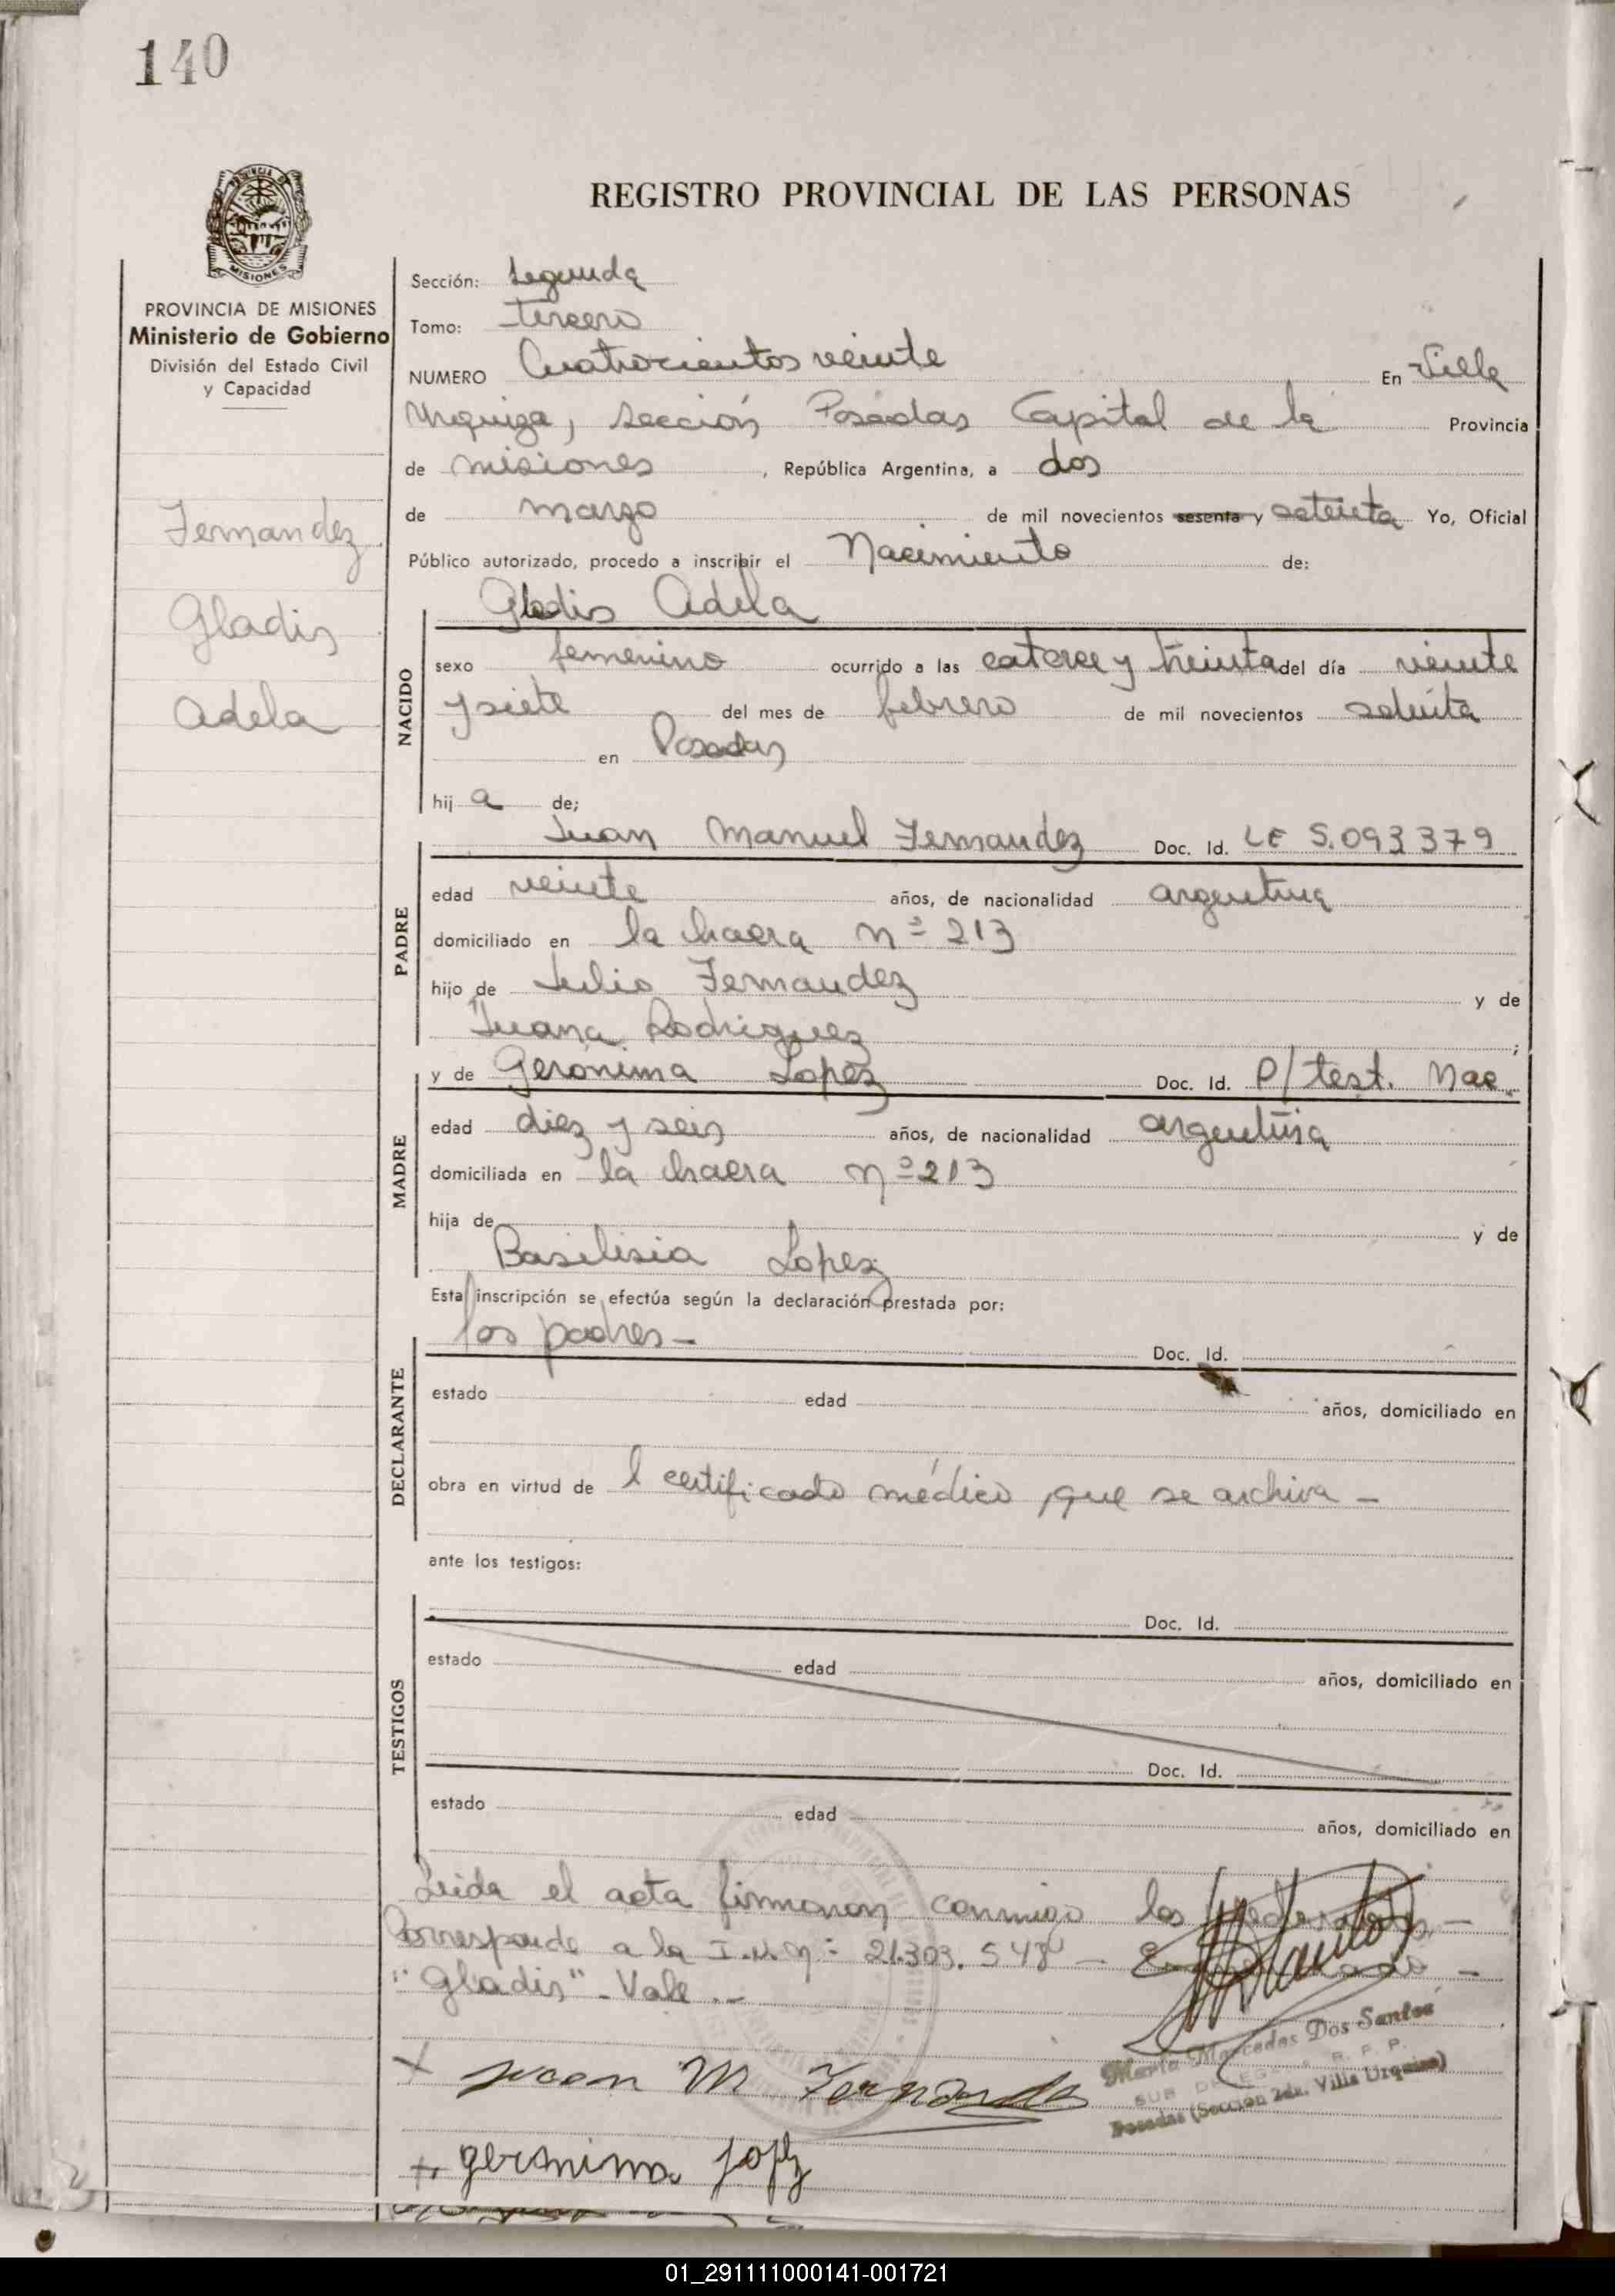 140
REGISTRO PROVINCIAL DE LAS PERSONAS
PROVINCIA DE MISIONES
MISIONES
PROVINCIA DE MISIONES
Ministerio de Gobierno
División del Estado Civil
y Capacidad
Fernandez
Gladis
Adela
Sección: Segunda
Tomo: Tercero
NUMERO Cuatrocientos veinte En Villa
Urquiza, Sección Posadas Capital de la Provincia
de misiones, República Argentina, a dos
de marzo de mil novecientos sesenta y setenta Yo, Oficial
Público autorizado, procedo a inscribir el Nacimiento de:
Gladis Adela
NACIDO
sexo femenino ocurrido a las catorce y treinta del día veinte
y siete del mes de febrero de mil novecientos setenta
en Posadas
hija de;
Juan Manuel Fernandez Doc. Id. LE 5.093379
PADRE
edad veinte años, de nacionalidad argentina
domiciliado en la chacra nº 213
hijo de Julio Fernandez y de
Juana Rodriguez;
y de Gerónima Lopez Doc. Id. P/test. Nac.
MADRE
edad diez y seis años, de nacionalidad argentina
domiciliada en la chacra nº 213
hija de y de
Basilisia Lopez
Esta inscripción se efectúa según la declaración prestada por:
los padres - Doc. Id.
DECLARANTE
estado edad años, domiciliado en
obra en virtud de l certificado médico, que se archiva -
ante los testigos:
Doc. Id.
TESTIGOS
estado edad años, domiciliado en
Doc. Id.
estado edad años, domiciliado en
Leida el acta firmaron conmigo los
Corresponde a la I.M.Nº: 21.303.548 -
"Gladis" - Vale. -
María Mercedes Dos Santos
SUB DELEGADA R. P. P.
Posadas (Sección 2da. Villa Urquiza)
x Juan M Fernandez
+ geronima lopez
01_291111000141-001721